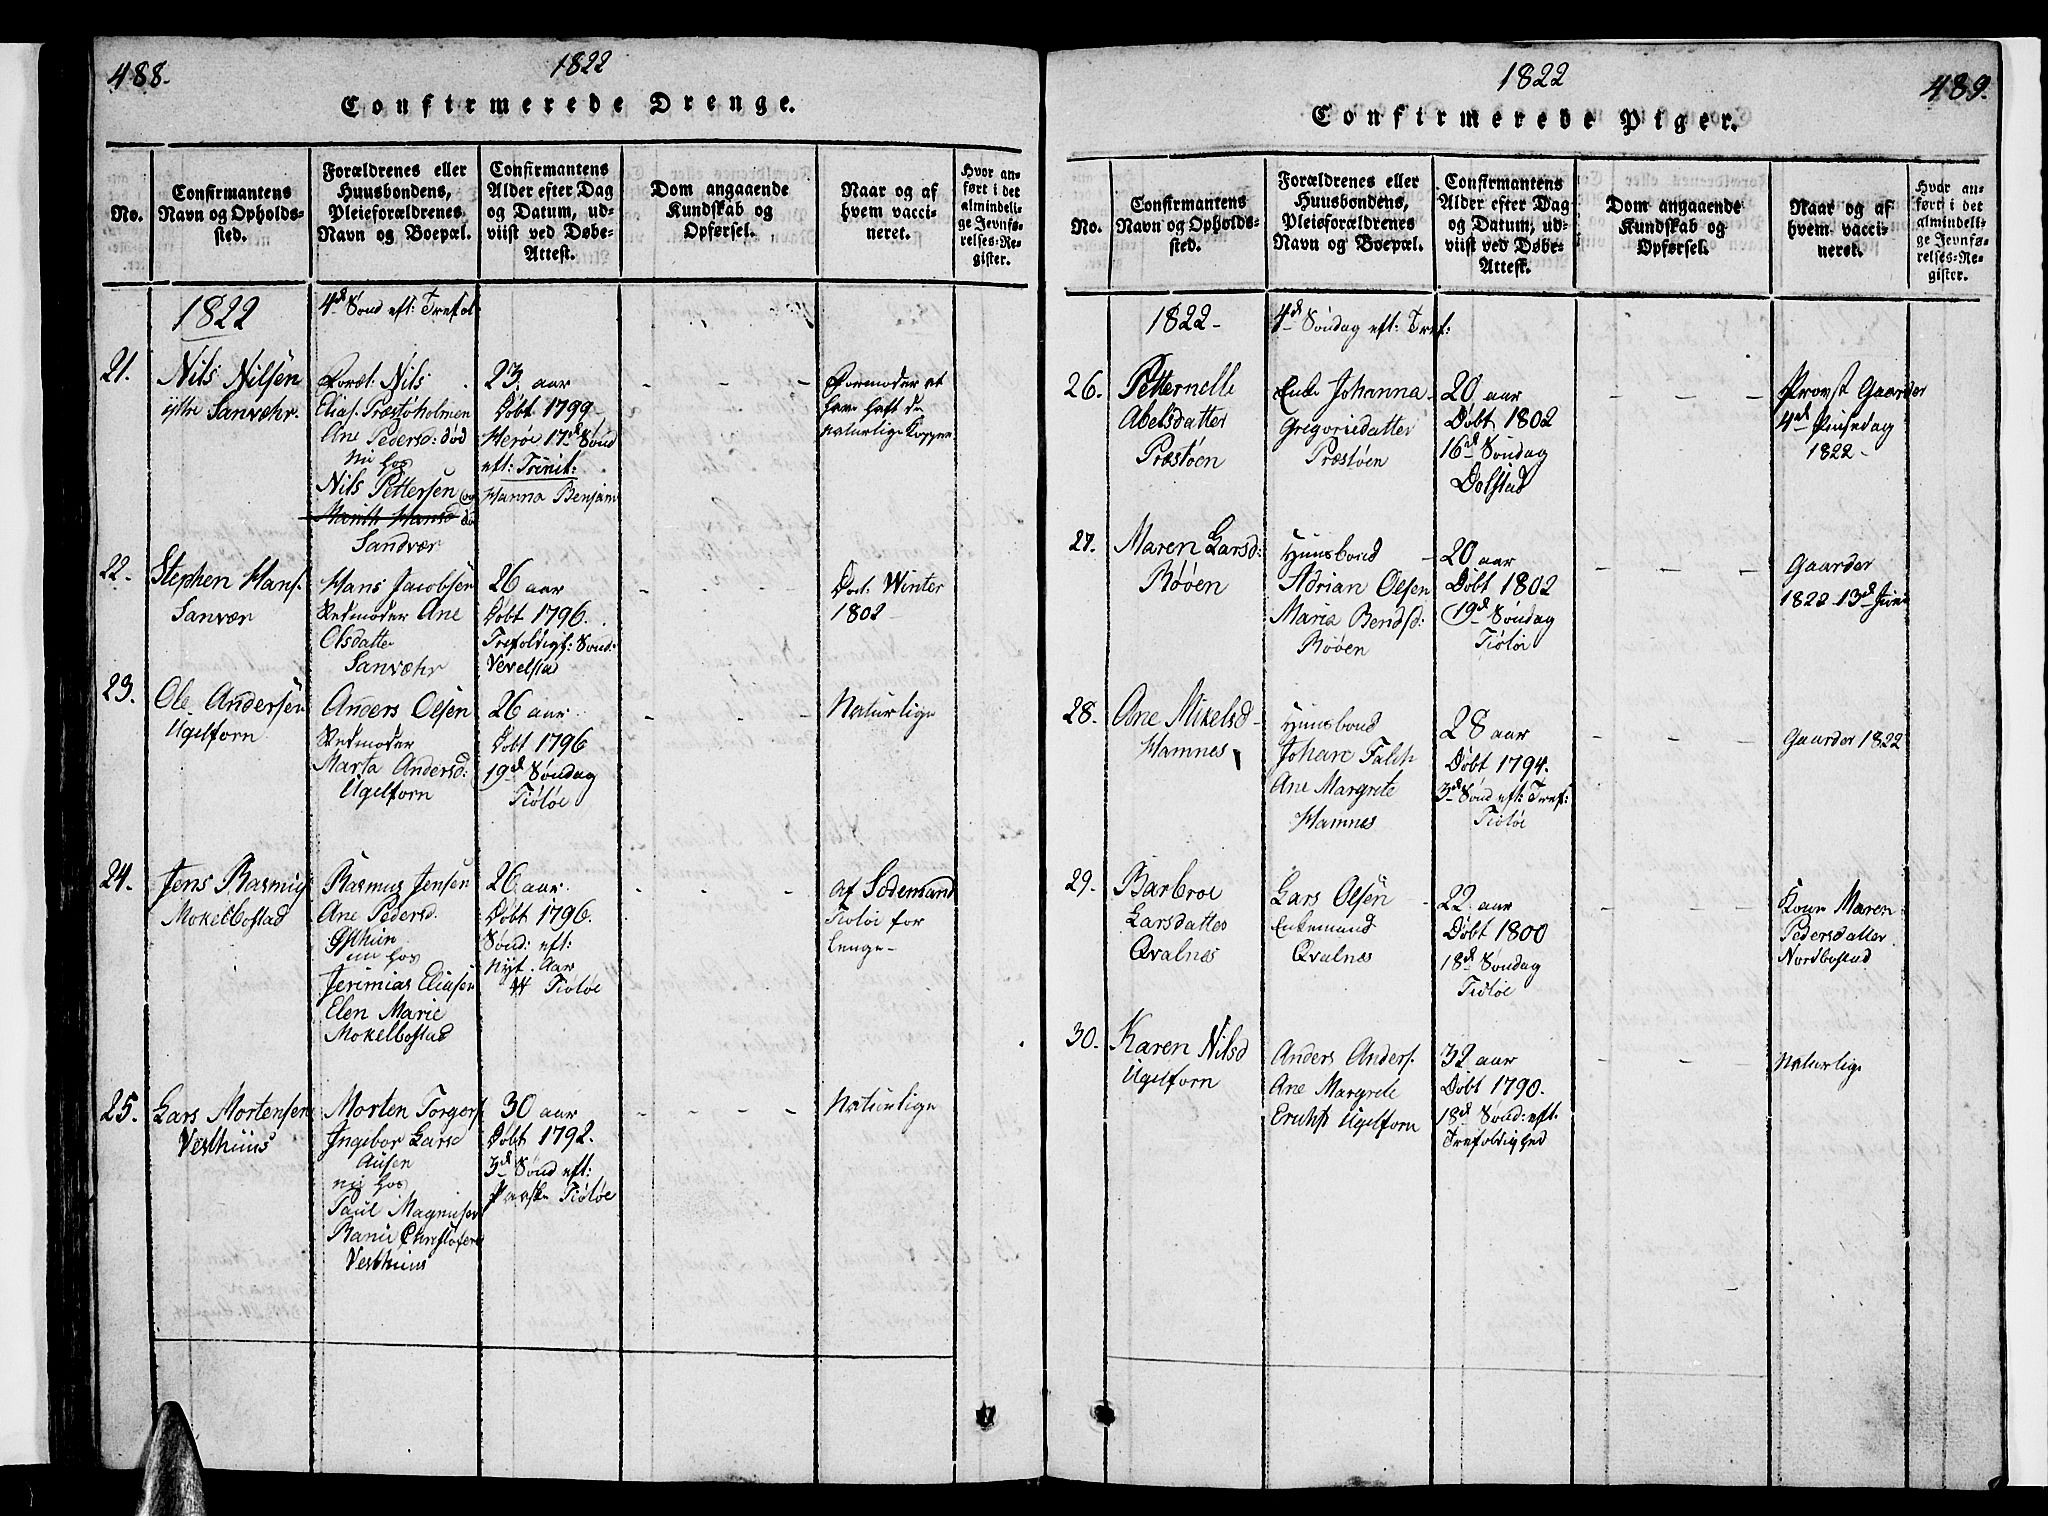 488.
1822
Confirmerede Drenge.
No.
Confirmantens
Navn og Opholds-
sted.
Forældrenes eller
Huusbondens,
Pleieforældrenes
Navn og Boepæl.
Confirmantens
Alder efter Dag
og Datum, ud-
viist ved Døbe-
Attest.
Dom angaaende
Kundskab og
Opførsel.
Naar og af
hvem vacci-
neret.
Hvor an-
ført i det
almindeli-
ge Jevnfø-
relses-Re-
gister.
1822
4d Sønd eft: Trefol:
21.
Nils Nilsen
ÿttre Sanvæhr.
Foræl: Nils
Elias. Præstøholmen
Ane Pedersd: død
nu hos
Nils Pettersen og
Marith Hansd
Sandvær
23 aar
Døbt 1799
Herøe 17d Sønd
eft: Trinit:
Hanna Benjam
- - - -
Formoder at
have haft de
naturlige Kopper
22.
Stephen Hans.
Sanvær
Hans Jacobsen
Stedmoder Ane
Olsdatte
Sanvæhr
26 aar
Døbt 1796.
Trefoldigh: Sønd:
Vevelsta
- - -
Doct. Winter
1802
23.
Ole Andersen
Ugelforn
Anders Olsen
Stedmoder
Marta Andersd:
Ugelforn
26 aar
Døbt 1796
19d Søndag
Tiøtøe
- - -
Naturlige
24.
Jens Rasmus
Mokelbostad
Rasmus Jensen
Ane Pedersd.
nu hos
Jerimias Eliasen
Elen Marie
Mokelbostad
26 aar
Døbt 1796.
Sønd: eft:
Nyt. Aar
Tiøtøe
- - -
af Sodemand
Tiøtøe for
lenge-
25.
Lars Mortensen
Vesthuus
Morten Torgers
Ingebor Larsd
Ausen
nu hos
Paul Magnusen
Ranii Christofers
Vesthuus
30 aar
Døbt 1792.
3d Sønd eft:
Paaske Tiøtøe
- - - -
Naturlige
489.
1822
Confirmerede Piger.
No.
Confirmantens
Navn og Opholds-
sted.
Forældrenes eller
Huusbondens,
Pleieforældrenes
Navn og Boepæl.
Confirmantens
Alder efter Dag
og Datum, ud-
viist ved Døbe-
Attest.
Dom angaaende
Kundskab og
Opførsel.
Naar og af
hvem vacci-
neret.
Hvor an-
ført i det
almindeli-
ge Jevnfø-
relses-Re-
gister.
1822-
4d Søndag eft: Tref:
26.
Petternelle
Abelsdatter
Præstøen
Enke Johanna
Gregoriedatter
Præstøen
20 aar
Døbt 1802
16d Søndag
Dolstad
- - -
Provst Gaarder
4d Pinsedag
1822-
27.
Maren Larsd:
Røøen
Huusbond
Adrian Olsen
Maria Bendsd:
Røøen
20 aar
Døbt 1802
19d Søndag
Tiøtøe
- - -
Gaarder
1822 13d Juni
28.
Ane Mikelsd
Hamnes
Huusbond
Johan Falch
Ane Margrete
Hamnes
28 aar
Døbt 1794.
3d Sønd eft: Tref:
Tiøtøe
- - -
Gaarder 1822
29.
Barbroe
Larsdatter
Qvalnes
Lars Olsen
Enkemand
Qvalnes
22 aar
Døbt 1800
18d Søndag
Tiøtøe
- - -
Kone Maren
Pedersdatter
Nordbostad
30.
Karen Nilsd
Ugelforn
Anders Anders.
Ane Margrete
Erichs Ugelforn
32 aar
Døbt 1790.
18d Sønd: eft:
Trefoldighed
- - -
Naturlige